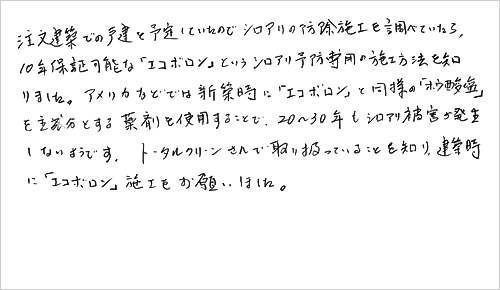 注文建築での戸建を予定していたのでシロアリの防除施工を調べていたら、
10年保証可能な「エコボロン」というシロアリ予防専用の施工方法を知
りました。アメリカなどでは新築時に「エコボロン」と同様の「ホウ酸塩」
を主成分とする薬剤を使用することで、20〜30年もシロアリ被害が発生
しないようです。トータルクリーンさんで取り扱っていることを知り、建築時
に「エコボロン」施工をお願いしました。